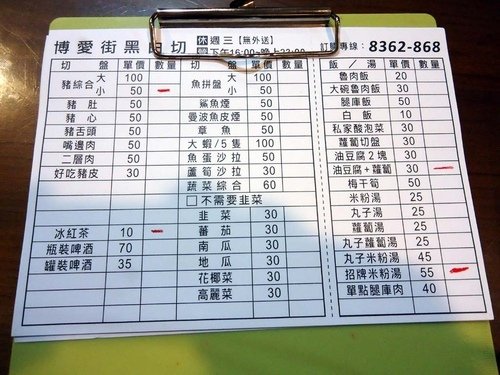 博愛街黑白切 休週三【無外送】 訂購專線：8362-868
下午16:00~晚上23:00
切 盤 單價 數量
豬綜合 大 100
小 50
豬 肚 50
豬 心 50
豬舌頭 50
嘴邊肉 50
二層肉 50
好吃豬皮 30
冰紅茶 10
瓶裝啤酒 70
罐裝啤酒 35
切 盤 單價 數量
魚拼盤 大 100
小 50
鯊魚煙 50
曼波魚皮煙 50
章 魚 50
大蝦/5隻 100
魚蛋沙拉 50
蘆筍沙拉 30
蔬菜綜合 60
□不需要韭菜
韭 菜 30
番 茄 30
南 瓜 30
地 瓜 30
花椰菜 30
高麗菜 30
飯 ／ 湯 單價 數量
魯肉飯 20
大碗魯肉飯 30
腿庫飯 50
白 飯 10
私家酸泡菜 30
蘿蔔切盤 30
油豆腐2塊 30
油豆腐+蘿蔔 30
梅干筍 50
米粉湯 25
丸子湯 25
蘿蔔湯 25
丸子蘿蔔湯 25
丸子米粉湯 45
招牌米粉湯 55
單點腿庫肉 40